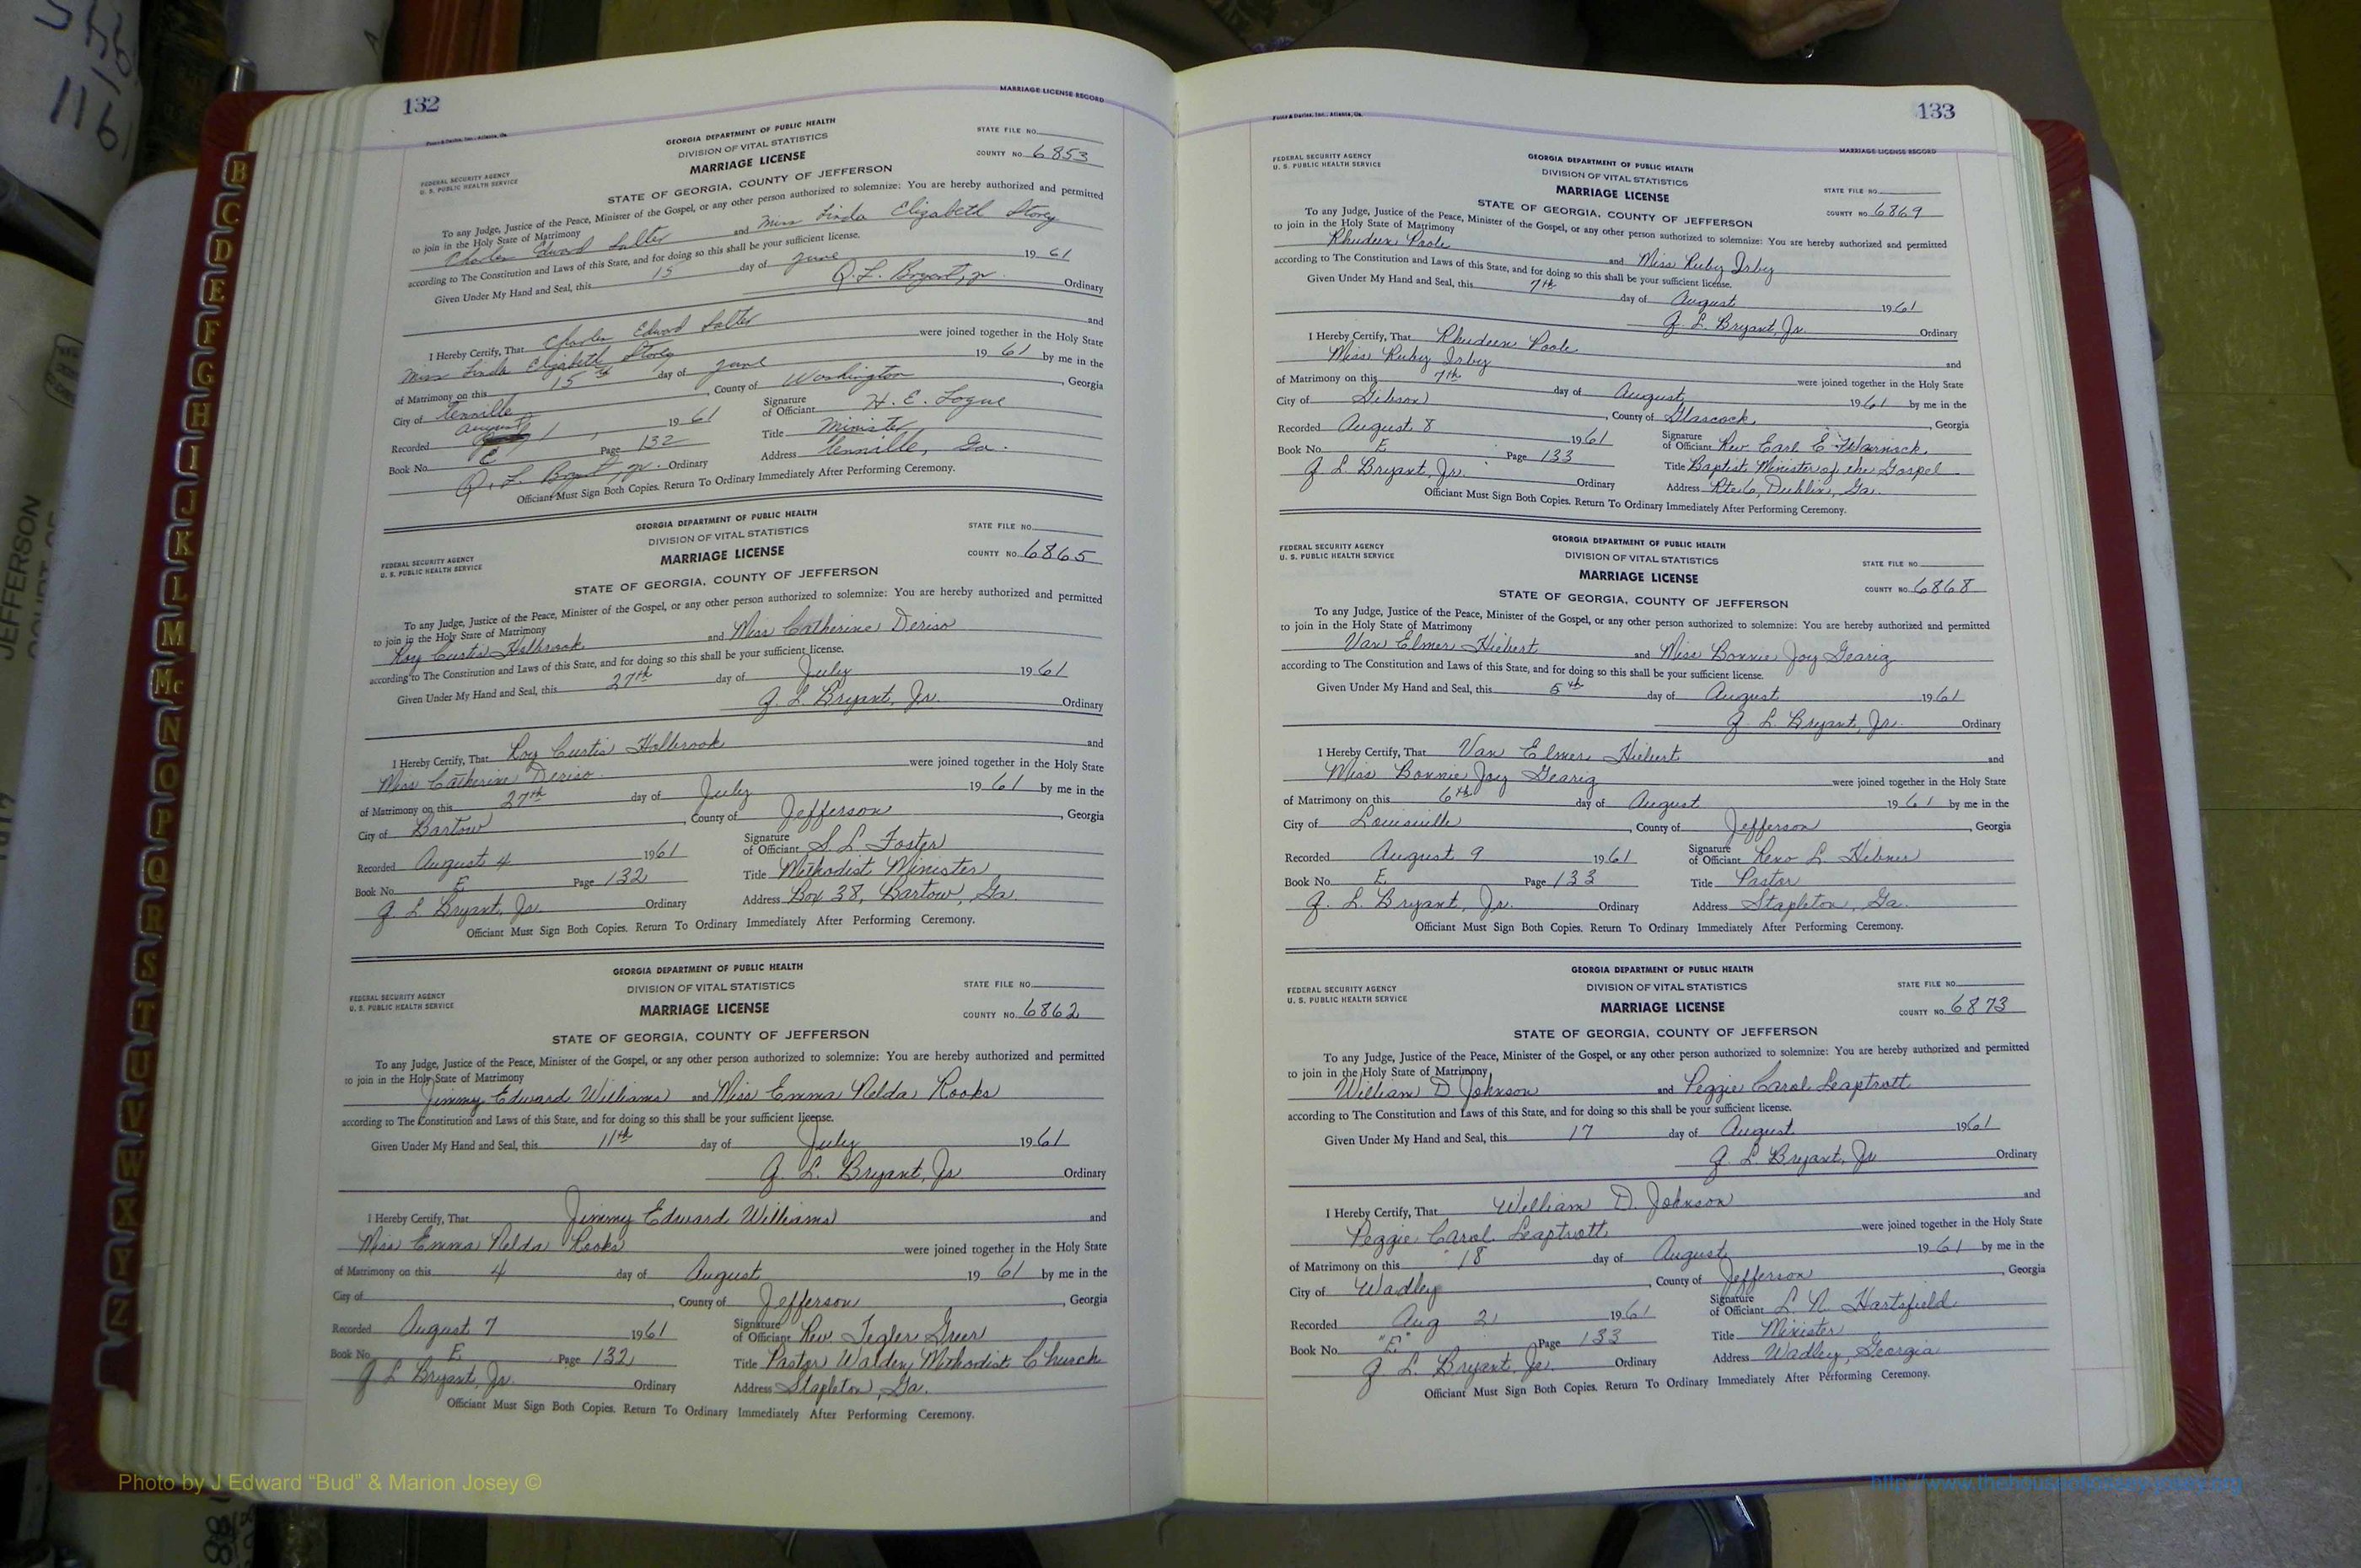 132
MARRIAGE LICENSE RECORD
GEORGIA DEPARTMENT OF PUBLIC HEALTH
DIVISION OF VITAL STATISTICS
MARRIAGE LICENSE
STATE FILE NO.
COUNTY NO. 6853
FEDERAL SECURITY AGENCY
U. S. PUBLIC HEALTH SERVICE
STATE OF GEORGIA, COUNTY OF JEFFERSON
To any Judge, Justice of the Peace, Minister of the Gospel, or any other person authorized to solemnize: You are hereby authorized and permitted
to join in the Holy State of Matrimony
Charles Edward Salter and Miss Linda Elizabeth Storey
according to The Constitution and Laws of this State, and for doing so this shall be your sufficient license.
Given Under My Hand and Seal, this 15 day of June 19 61
Q. L. Bryant, Jr. Ordinary
I Hereby Certify, That Charles Edward Salter and
Miss Linda Elizabeth Storey were joined together in the Holy State
of Matrimony on this 15th day of June 19 61 by me in the
City of Tennille, County of Washington, Georgia
Recorded August 1, 19 61 Signature of Officiant H. E. Logue
Book No. E Page 132 Title Minister
Q. L. Bryant, Jr. Ordinary Address Tennille, Ga.
Officiant Must Sign Both Copies. Return To Ordinary Immediately After Performing Ceremony.
GEORGIA DEPARTMENT OF PUBLIC HEALTH
DIVISION OF VITAL STATISTICS
MARRIAGE LICENSE
STATE FILE NO.
COUNTY NO. 6865
FEDERAL SECURITY AGENCY
U. S. PUBLIC HEALTH SERVICE
STATE OF GEORGIA, COUNTY OF JEFFERSON
To any Judge, Justice of the Peace, Minister of the Gospel, or any other person authorized to solemnize: You are hereby authorized and permitted
to join in the Holy State of Matrimony
Roy Curtis Holbrook and Miss Catherine Deriso
according to The Constitution and Laws of this State, and for doing so this shall be your sufficient license.
Given Under My Hand and Seal, this 27th day of July 1961
Q. L. Bryant, Jr. Ordinary
I Hereby Certify, That Roy Curtis Holbrook and
Miss Catherine Deriso were joined together in the Holy State
of Matrimony on this 27th day of July 19 61 by me in the
City of Bartow, County of Jefferson, Georgia
Recorded August 4 1961 Signature of Officiant S. L. Foster
Book No. E Page 132 Title Methodist Minister
Q. L. Bryant, Jr. Ordinary Address Box 38, Bartow, Ga.
Officiant Must Sign Both Copies. Return To Ordinary Immediately After Performing Ceremony.
GEORGIA DEPARTMENT OF PUBLIC HEALTH
DIVISION OF VITAL STATISTICS
MARRIAGE LICENSE
STATE FILE NO.
COUNTY NO. 6862
FEDERAL SECURITY AGENCY
U. S. PUBLIC HEALTH SERVICE
STATE OF GEORGIA, COUNTY OF JEFFERSON
To any Judge, Justice of the Peace, Minister of the Gospel, or any other person authorized to solemnize: You are hereby authorized and permitted
to join in the Holy State of Matrimony
Jimmy Edward Williams and Miss Emma Nelda Rooks
according to The Constitution and Laws of this State, and for doing so this shall be your sufficient license.
Given Under My Hand and Seal, this 11th day of July 1961
Q. L. Bryant, Jr. Ordinary
I Hereby Certify, That Jimmy Edward Williams and
Miss Emma Nelda Rooks were joined together in the Holy State
of Matrimony on this 4 day of August 19 61 by me in the
City of , County of Jefferson, Georgia
Recorded August 7 1961 Signature of Officiant Rev. Tegler Greer
Book No. E Page 132 Title Pastor Walden Methodist Church
Q L Bryant, Jr. Ordinary Address Stapleton, Ga.
Officiant Must Sign Both Copies. Return To Ordinary Immediately After Performing Ceremony.
133
MARRIAGE LICENSE RECORD
FEDERAL SECURITY AGENCY
U. S. PUBLIC HEALTH SERVICE
GEORGIA DEPARTMENT OF PUBLIC HEALTH
DIVISION OF VITAL STATISTICS
MARRIAGE LICENSE
STATE FILE NO.
COUNTY NO. 6869
STATE OF GEORGIA, COUNTY OF JEFFERSON
To any Judge, Justice of the Peace, Minister of the Gospel, or any other person authorized to solemnize: You are hereby authorized and permitted
to join in the Holy State of Matrimony
Rhudeen Poole and Miss Ruby Irby
according to The Constitution and Laws of this State, and for doing so this shall be your sufficient license.
Given Under My Hand and Seal, this 7th day of August 1961
Q. L. Bryant, Jr. Ordinary
I Hereby Certify, That Rhudeen Poole and
Miss Ruby Irby were joined together in the Holy State
of Matrimony on this 7th day of August 1961 by me in the
City of Gibson, County of Glascock, Georgia
Recorded August 8 1961 Signature of Officiant Rev. Earl E. Warnock
Book No. E Page 133 Title Baptist Minister of the Gospel
Q L Bryant, Jr. Ordinary Address Rte 6, Dublin, Ga.
Officiant Must Sign Both Copies. Return To Ordinary Immediately After Performing Ceremony.
FEDERAL SECURITY AGENCY
U. S. PUBLIC HEALTH SERVICE
GEORGIA DEPARTMENT OF PUBLIC HEALTH
DIVISION OF VITAL STATISTICS
MARRIAGE LICENSE
STATE FILE NO.
COUNTY NO. 6868
STATE OF GEORGIA, COUNTY OF JEFFERSON
To any Judge, Justice of the Peace, Minister of the Gospel, or any other person authorized to solemnize: You are hereby authorized and permitted
to join in the Holy State of Matrimony
Van Elmer Hiebert and Miss Bonnie Joy Gearig
according to The Constitution and Laws of this State, and for doing so this shall be your sufficient license.
Given Under My Hand and Seal, this 5th day of August 1961
Q. L. Bryant, Jr. Ordinary
I Hereby Certify, That Van Elmer Hiebert and
Miss Bonnie Joy Gearig were joined together in the Holy State
of Matrimony on this 6th day of August 19 61 by me in the
City of Louisville, County of Jefferson, Georgia
Recorded August 9 1961 Signature of Officiant Reno L. Hibner
Book No. E Page 133 Title Pastor
Q. L. Bryant, Jr. Ordinary Address Stapleton, Ga.
Officiant Must Sign Both Copies. Return To Ordinary Immediately After Performing Ceremony.
FEDERAL SECURITY AGENCY
U. S. PUBLIC HEALTH SERVICE
GEORGIA DEPARTMENT OF PUBLIC HEALTH
DIVISION OF VITAL STATISTICS
MARRIAGE LICENSE
STATE FILE NO.
COUNTY NO. 6873
STATE OF GEORGIA, COUNTY OF JEFFERSON
To any Judge, Justice of the Peace, Minister of the Gospel, or any other person authorized to solemnize: You are hereby authorized and permitted
to join in the Holy State of Matrimony
William D Johnson and Peggie Carol Leaptrott
according to The Constitution and Laws of this State, and for doing so this shall be your sufficient license.
Given Under My Hand and Seal, this 17 day of August 1961
Q. L. Bryant, Jr Ordinary
I Hereby Certify, That William D. Johnson and
Peggie Carol Leaptrott were joined together in the Holy State
of Matrimony on this 18 day of August 19 61 by me in the
City of Wadley, County of Jefferson, Georgia
Recorded Aug 21 1961 Signature of Officiant L. N. Hartsfield
Book No. "E" Page 133 Title Minister
Q L Bryant, Jr. Ordinary Address Wadley, Georgia
Officiant Must Sign Both Copies. Return To Ordinary Immediately After Performing Ceremony.
B
C
D
E
F
G
H
I
J
K
L
M
Mc
N
O
P
Q
R
S
T
U
V
W
X
Y
Z
JEFFERSON
Photo by J Edward “Bud” & Marion Josey ©